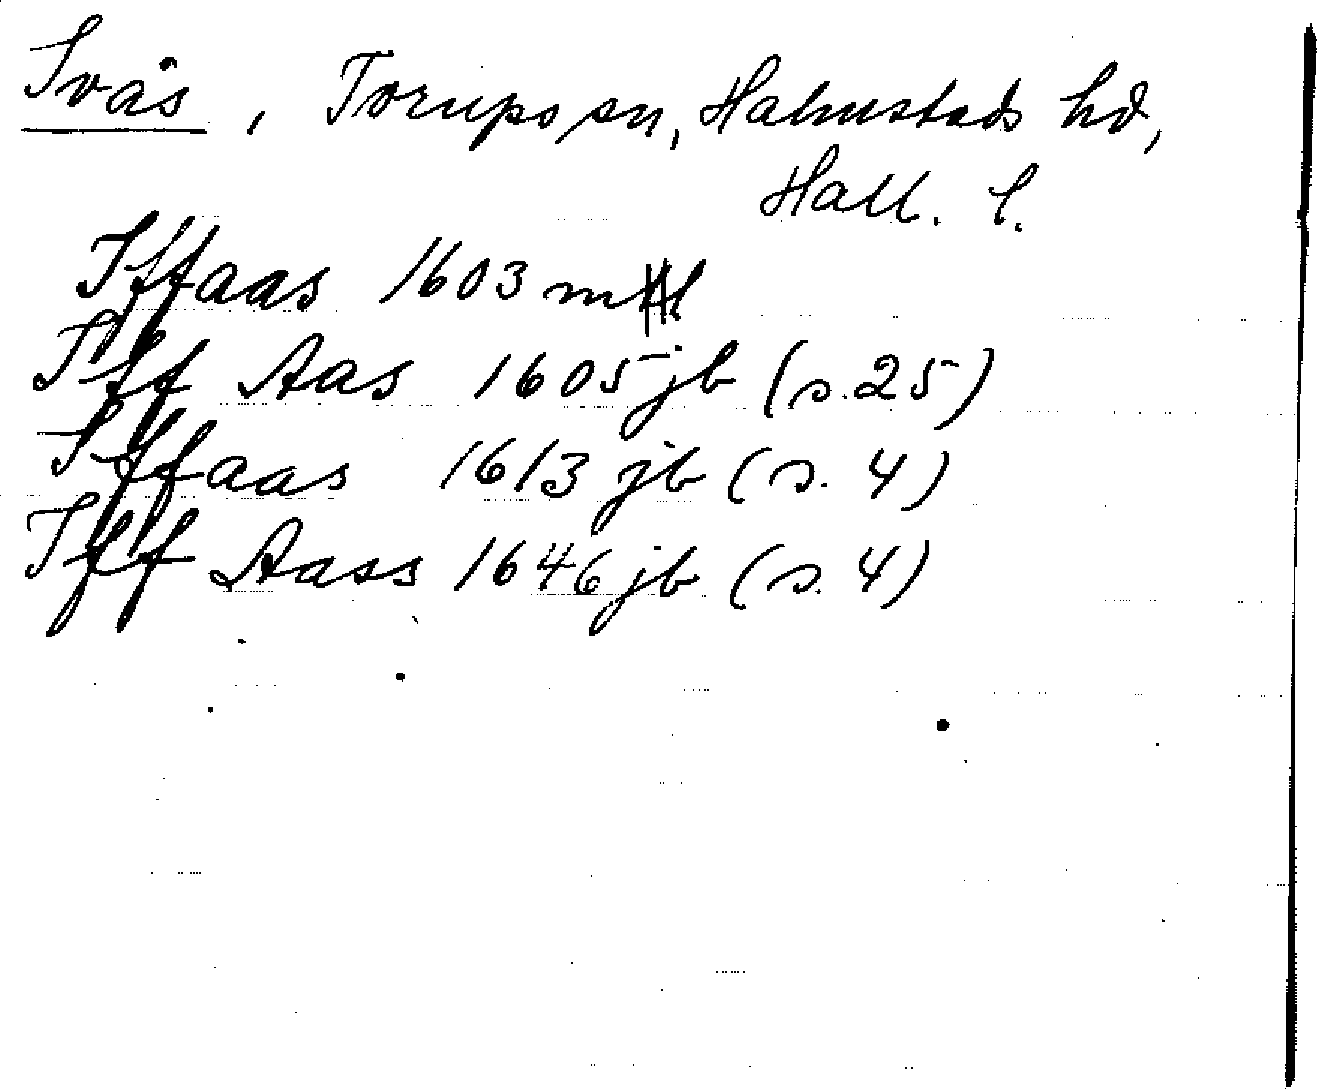 Ivås, Torups sn, Halmstads hd,
Hall. l.
Iffaas 1603 mtl
Iff Aas 1605 jb (s. 25)
Iffaas 1613 jb (s. 4)
Iff Aass 1646 jb (s. 4)